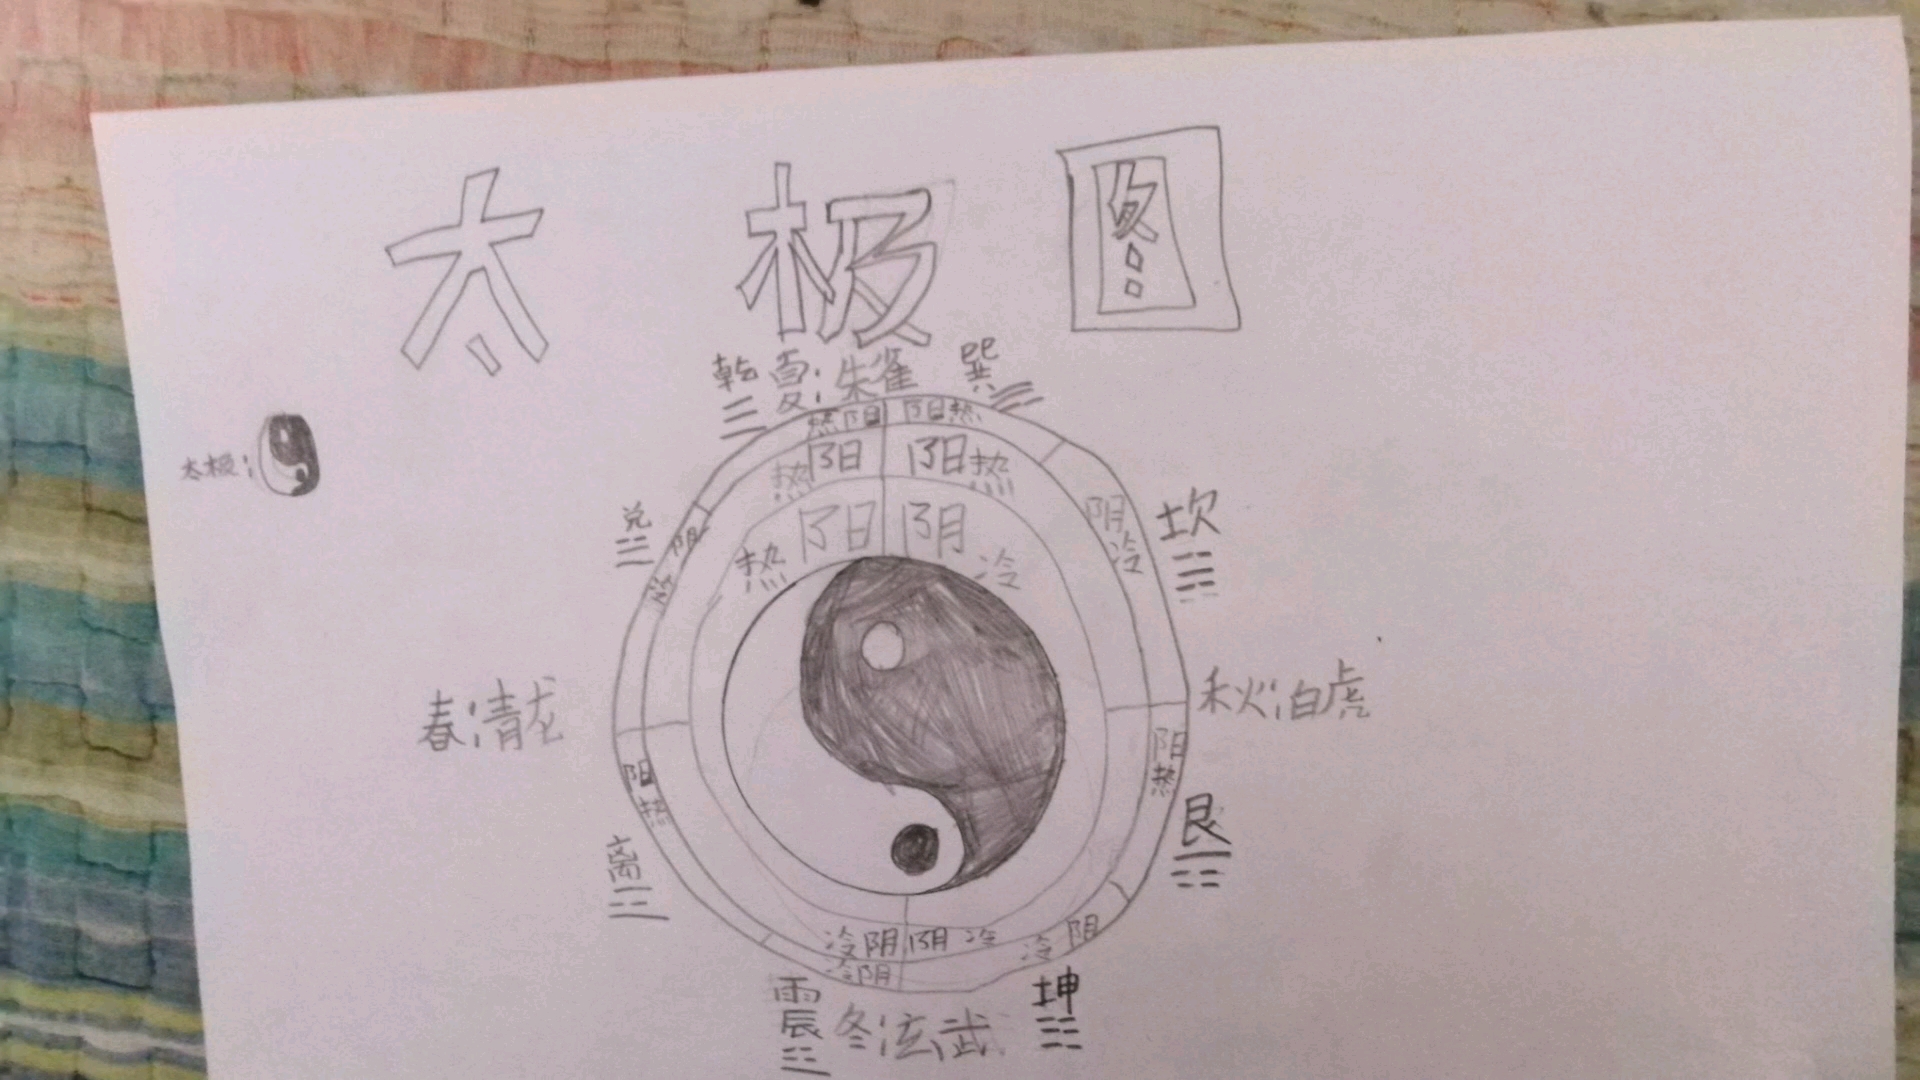 太极图
乾 夏:朱雀 巽
热阳 阳热
热阳 阳热
热阳 阴冷
太极:
兑
阴冷
阴冷
坎
春:青龙
秋:白虎
阳热
阳热
离
艮
冷阴 阴冷
冷阴
冷阴
震 冬:玄武 坤